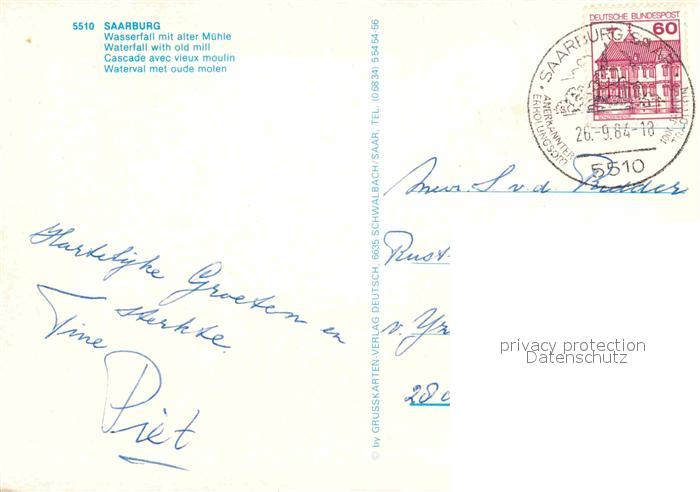 5510 SAARBURG
Wasserfall mit alter Mühle
Waterfall with old mill
Cascade avec vieux moulin
Waterval met oude molen
© by GRUSSKARTEN-VERLAG DEUTSCH, 6635 SCHWALBACH/SAAR, TEL. (0 68 34) 5 54 54-56
DEUTSCHE BUNDESPOST
60
SAARBURG, SAAR
ANERKANNTER
ERHOLUNGSORT
26.-9.84-18
5510
Hartelijke Groeten en
sterkte.
Tine
Piet
Mevr. S v.d. Ridder
Rust
v.
28
privacy protection
Datenschutz